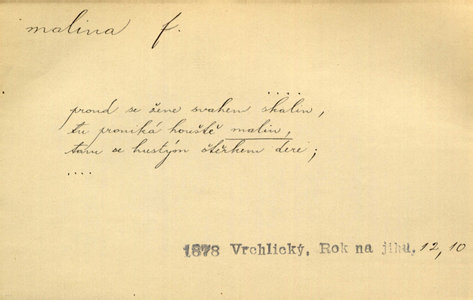 malina f.
....
proud se žene svahem skalin,
tu proniká houště malin,
tam se hustým štěrkem dere;
....
1878 Vrchlický, Rok na jihu, 12, 10